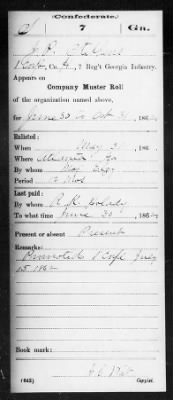 (Confederate.)
7 Ga.
1 Cor., Co. H, 7 Reg't Georgia Infantry.
Appears on
Company Muster Roll
of the organization named above,
for June 30 to Oct 31, 186
Enlisted:
When May 31, 186
Where Ga
By whom Maj
Period
Last paid:
By whom R. K.
To what time June 30, 186
Present or absent Present
Remarks:
Promoted 1 Corpl July
15 1862
Book mark:
(642) Copyist.